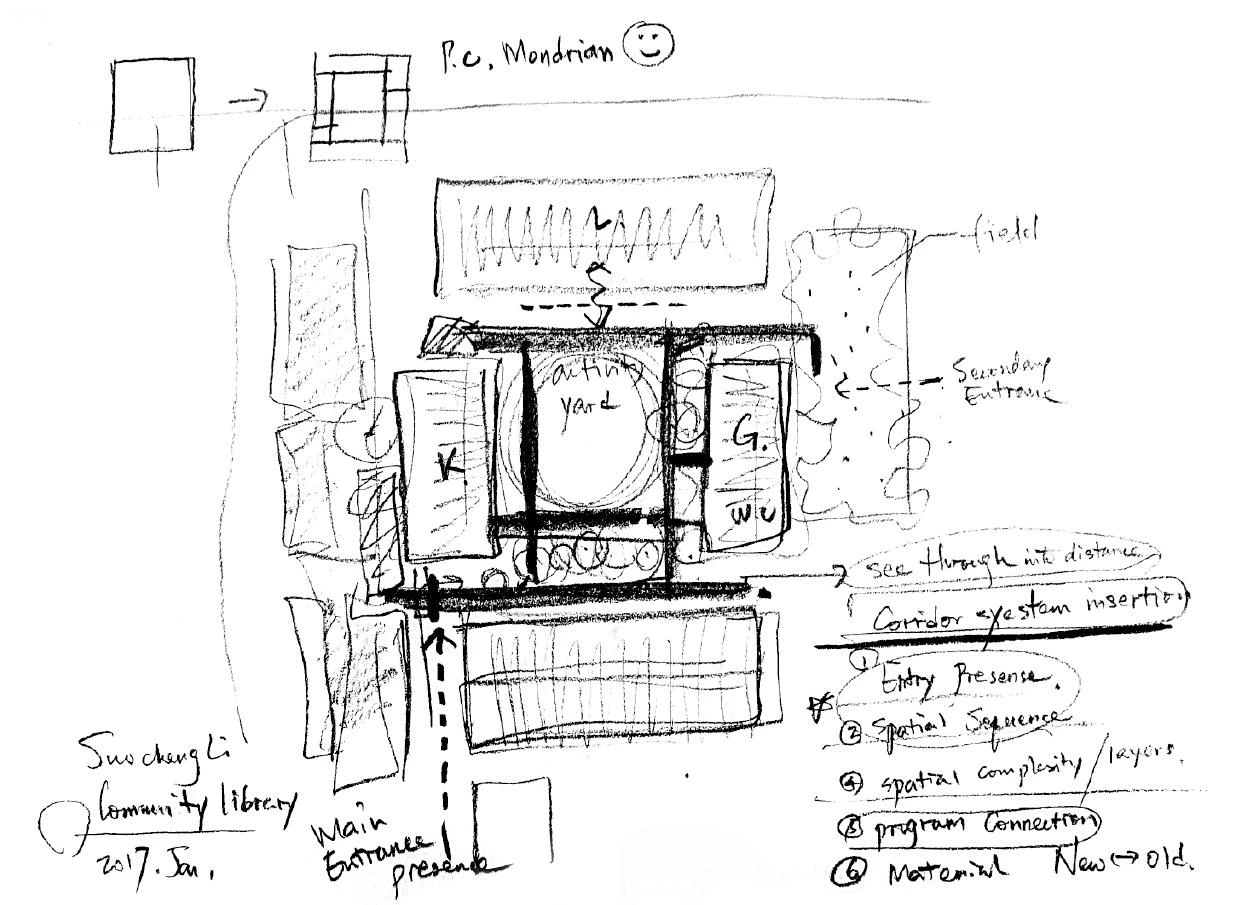 P.C. Mondrian
L
field
activity
yard
Secondary
Entrance
K
G.
WC
see through into distance
Corridor system insertion
① Entry Presense.
② Spatial Sequence
④ spatial complexity / layers.
⑤ program Connection
⑥ Material New ↔ Old.
Suochengli
Community library
2017. Jan.
Main
Entrance
presence